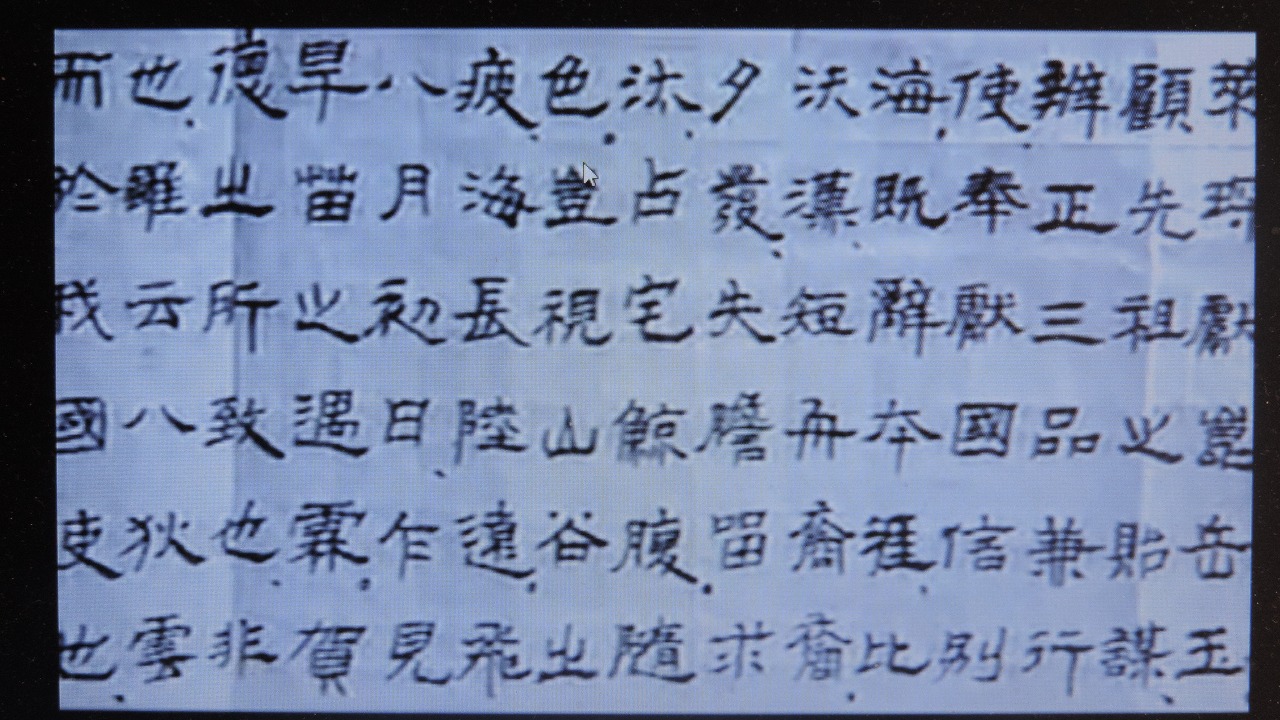 萊琛獻崑岳玉
顧先祖之貽謀
辨正三品兼行
使奉獻國信別
海既辭本涯比
沃漢短舟裔裔
夕發失膽留求
汰占宅鯨腹隨
色豈視山谷出
疲海長陸遠飛
八月初日乍見
旱苗之遇霖賀
德之所致也非
也羅云八狄雲
而於我國使也